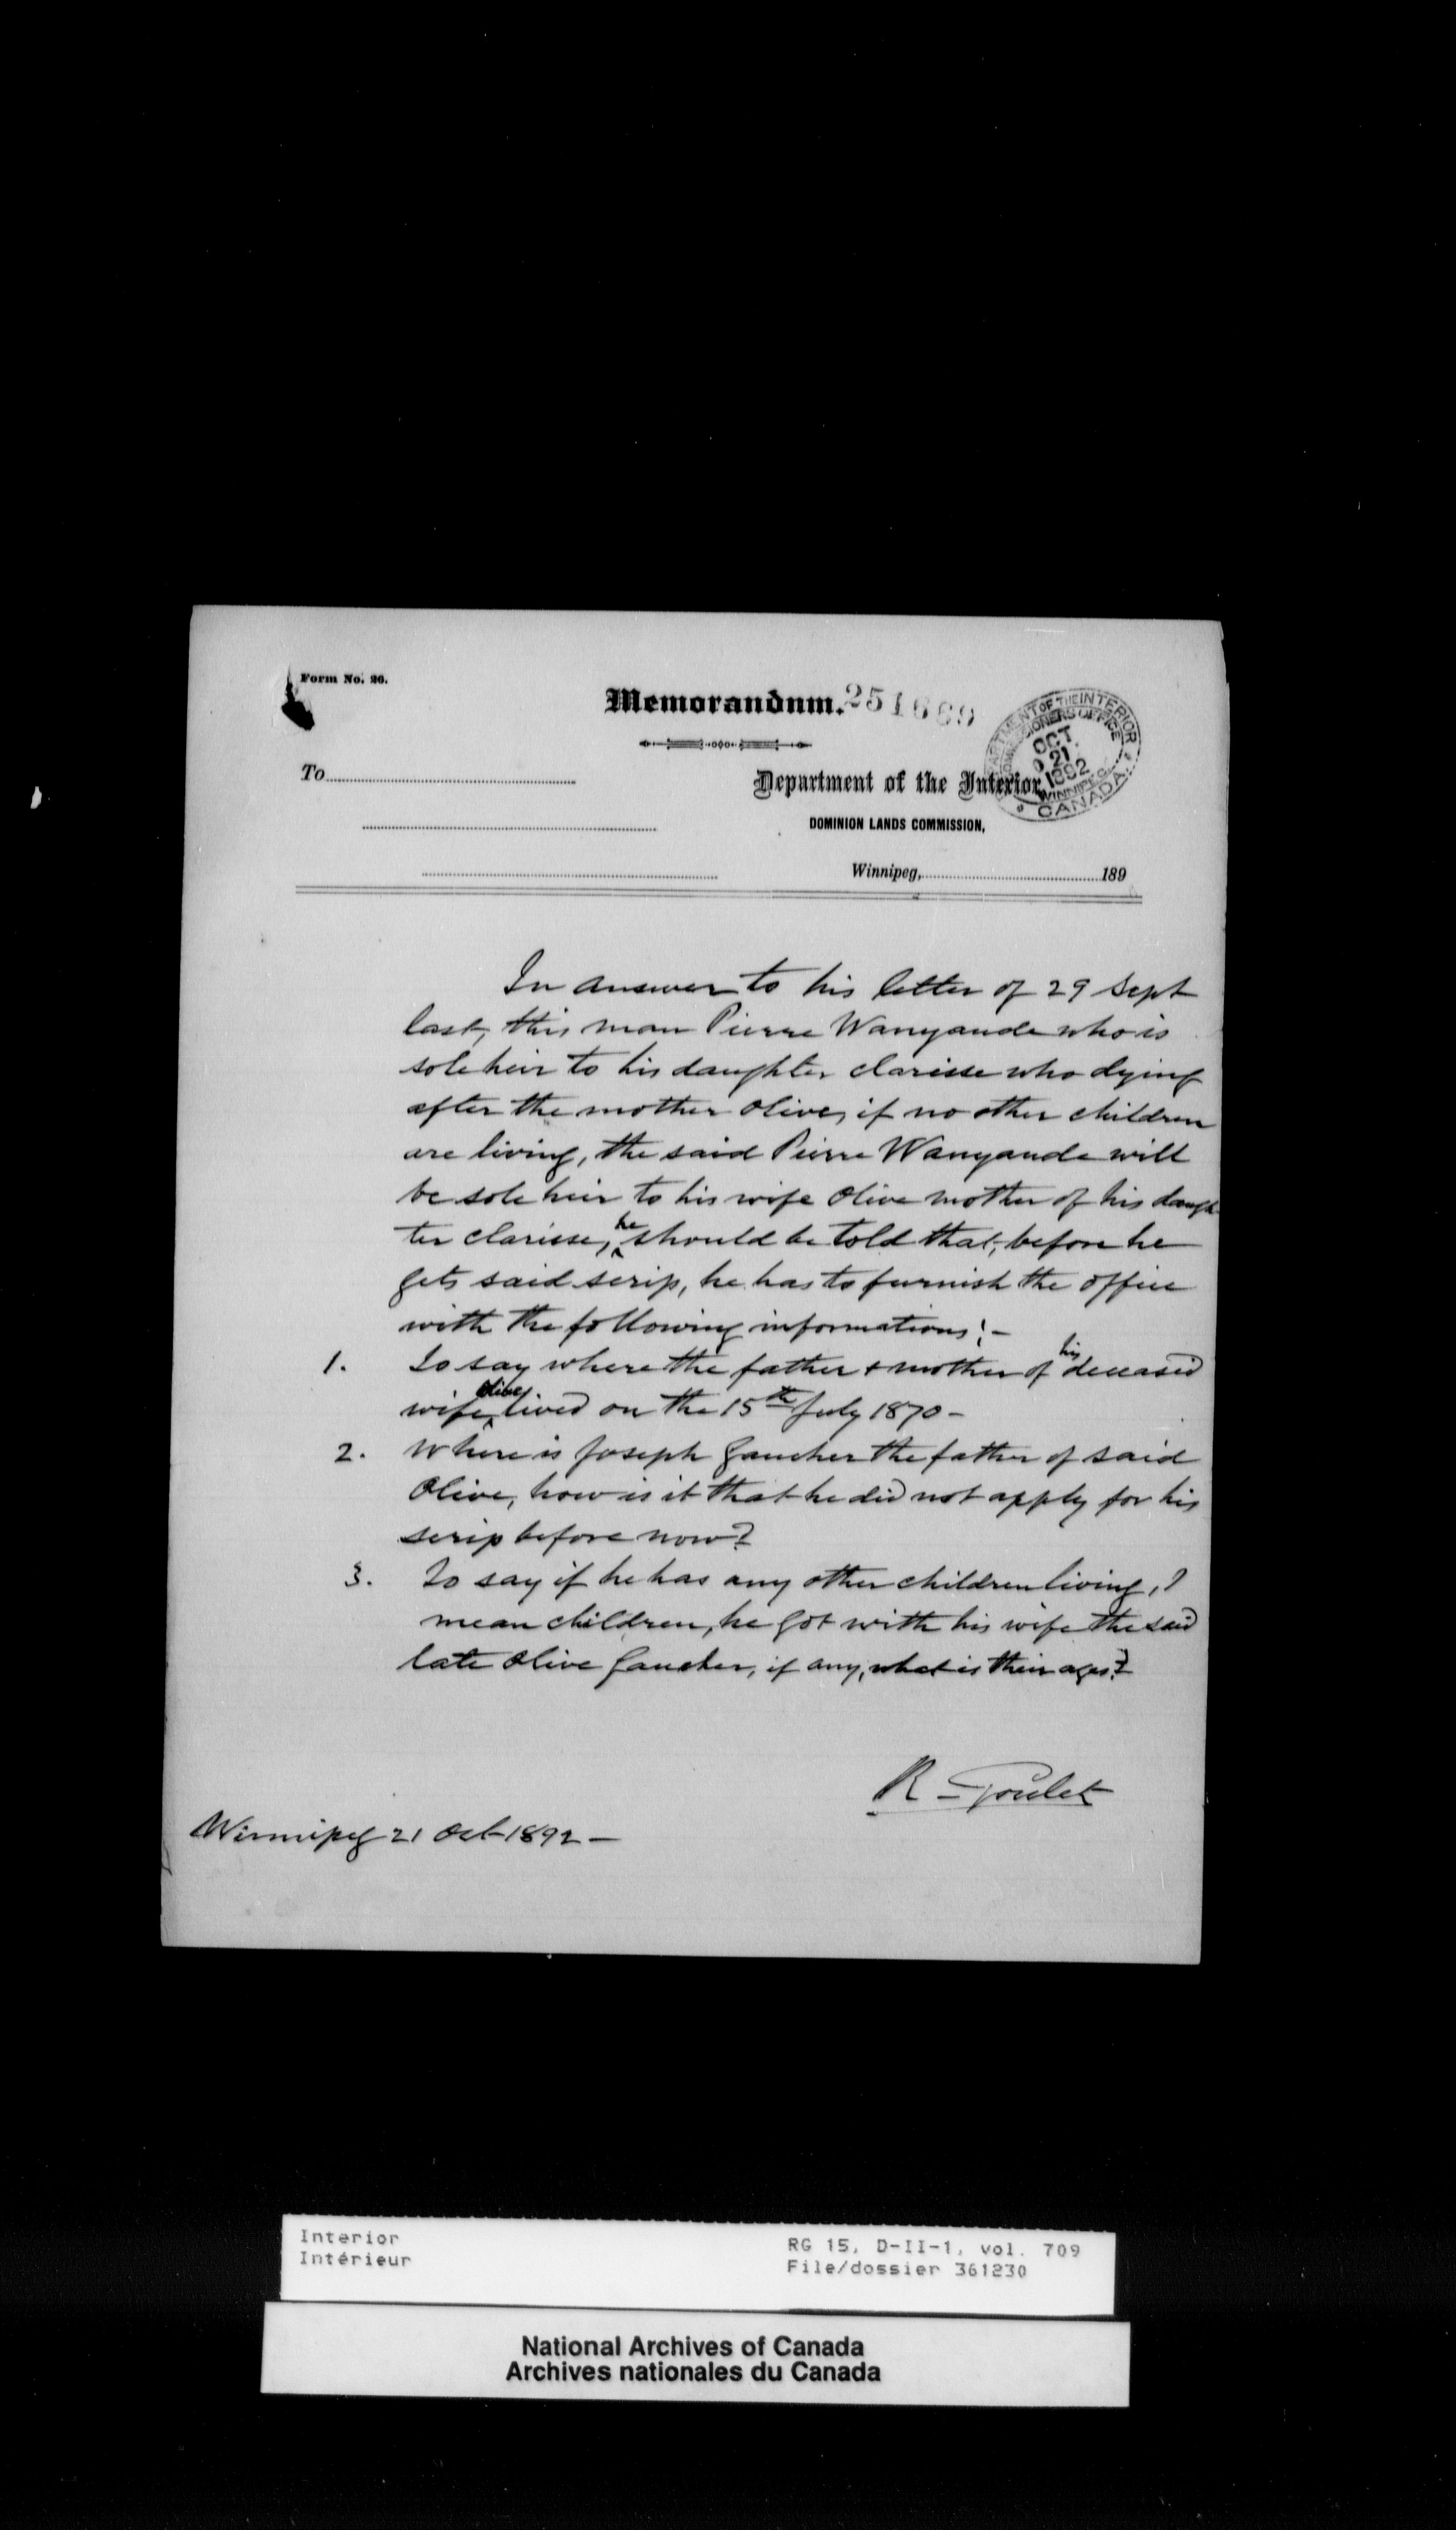 Form No. 26.
Memorandum.
251669
DEPARTMENT OF THE INTERIOR
COMMISSIONERS OFFICE
OCT
21
1892
WINNIPEG.
CANADA
To
Department of the Interior,
DOMINION LANDS COMMISSION,
Winnipeg, 189
In answer to his letter of 29 Sept
last, this man Pierre Wanyande who is
sole heir to his daughter clarisse who dying
after the mother Olive, if no other children
are living, the said Pierre Wanyande will
be sole heir to his wife Olive mother of his daugh
ter clarisse, he should be told that, before he
gets said scrip, he has to furnish the office
with the following informations:-
1. To say where the father & mother of his deceased
wife Olive lived on the 15th July 1870-
2. Where is Joseph Gaucher the father of said
Olive, how is it that he did not apply for his
scrip before now?
3. To say if he has any other children living, I
mean children, he got with his wife the said
late Olive Gaucher, if any, what is their ages?
R-Goulet
Winnipeg 21 Oct 1892-
Interior
Intérieur
RG 15, D-II-1, vol. 709
File/dossier 361230
National Archives of Canada
Archives nationales du Canada